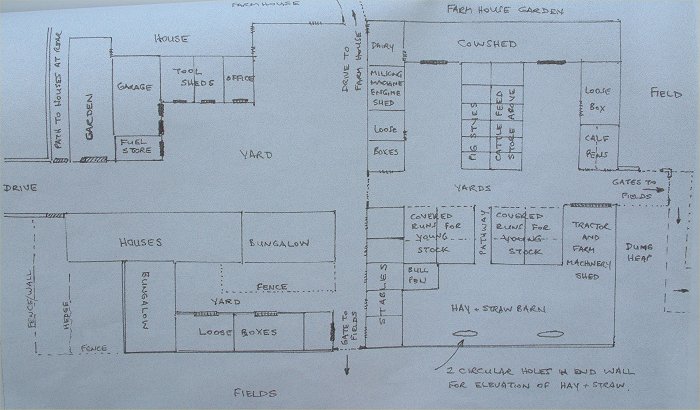 FARM HOUSE
FARM HOUSE GARDEN
HOUSE
DRIVE TO
FARM HOUSE
DAIRY
COWSHED
PATH TO HOUSES AT REAR
GARDEN
GARAGE
TOOL
SHEDS
OFFICE
MILKING
MACHINE
ENGINE
SHED
PIG STYES
CATTLE FEED
STORE ABOVE
LOOSE
BOX
FIELD
FUEL
STORE
LOOSE
BOXES
CALF
PENS
YARD
YARDS
GATES TO
FIELDS
DRIVE
HOUSES
BUNGALOW
COVERED
RUNS FOR
YOUNG
STOCK
PATHWAY
COVERED
RUNS FOR
YOUNG
STOCK
TRACTOR
AND
FARM
MACHINERY
SHED
DUNG
HEAP
FENCE/WALL
HEDGE
BUNGALOW
FENCE
STABLES
BULL
PEN
YARD
LOOSE BOXES
GATE TO
FIELDS
HAY + STRAW BARN
FENCE
2 CIRCULAR HOLES IN END WALL
FOR ELEVATION OF HAY + STRAW.
FIELDS